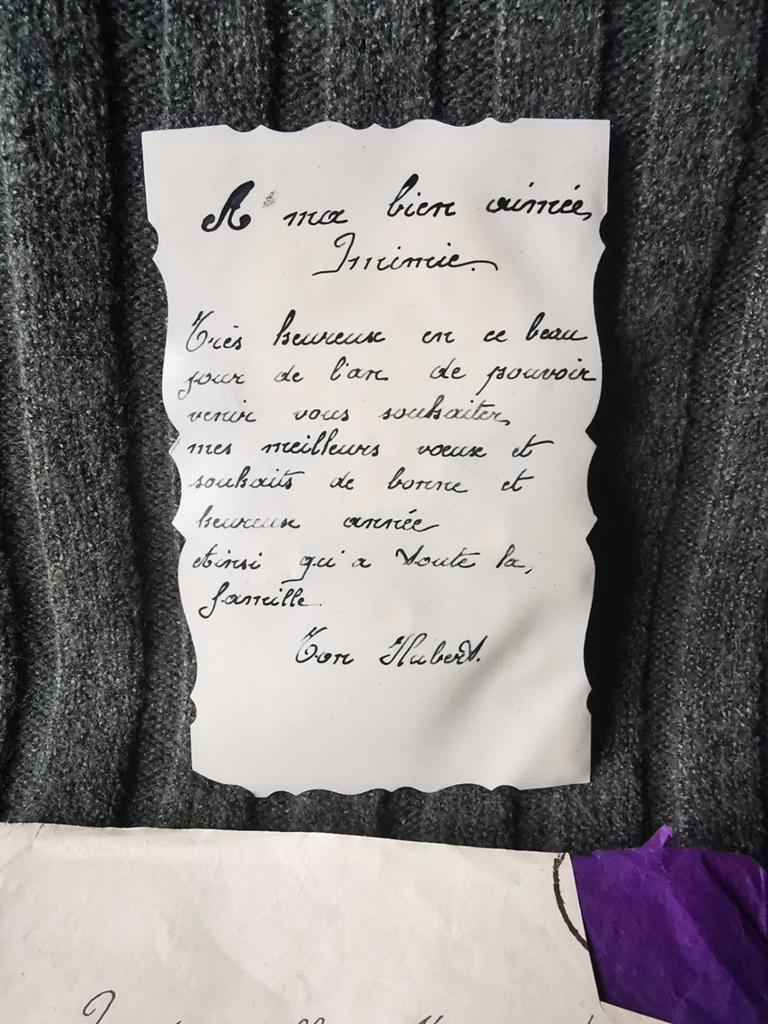 A ma bien aimée
Mimie.
Très heureuse en ce beau
jour de l'an de pouvoir
venir vous souhaiter,
mes meilleurs voeux et
souhaits de bonne et
heureuse année
Ainsi qu'a toute la,
famille
Ton Hubert.